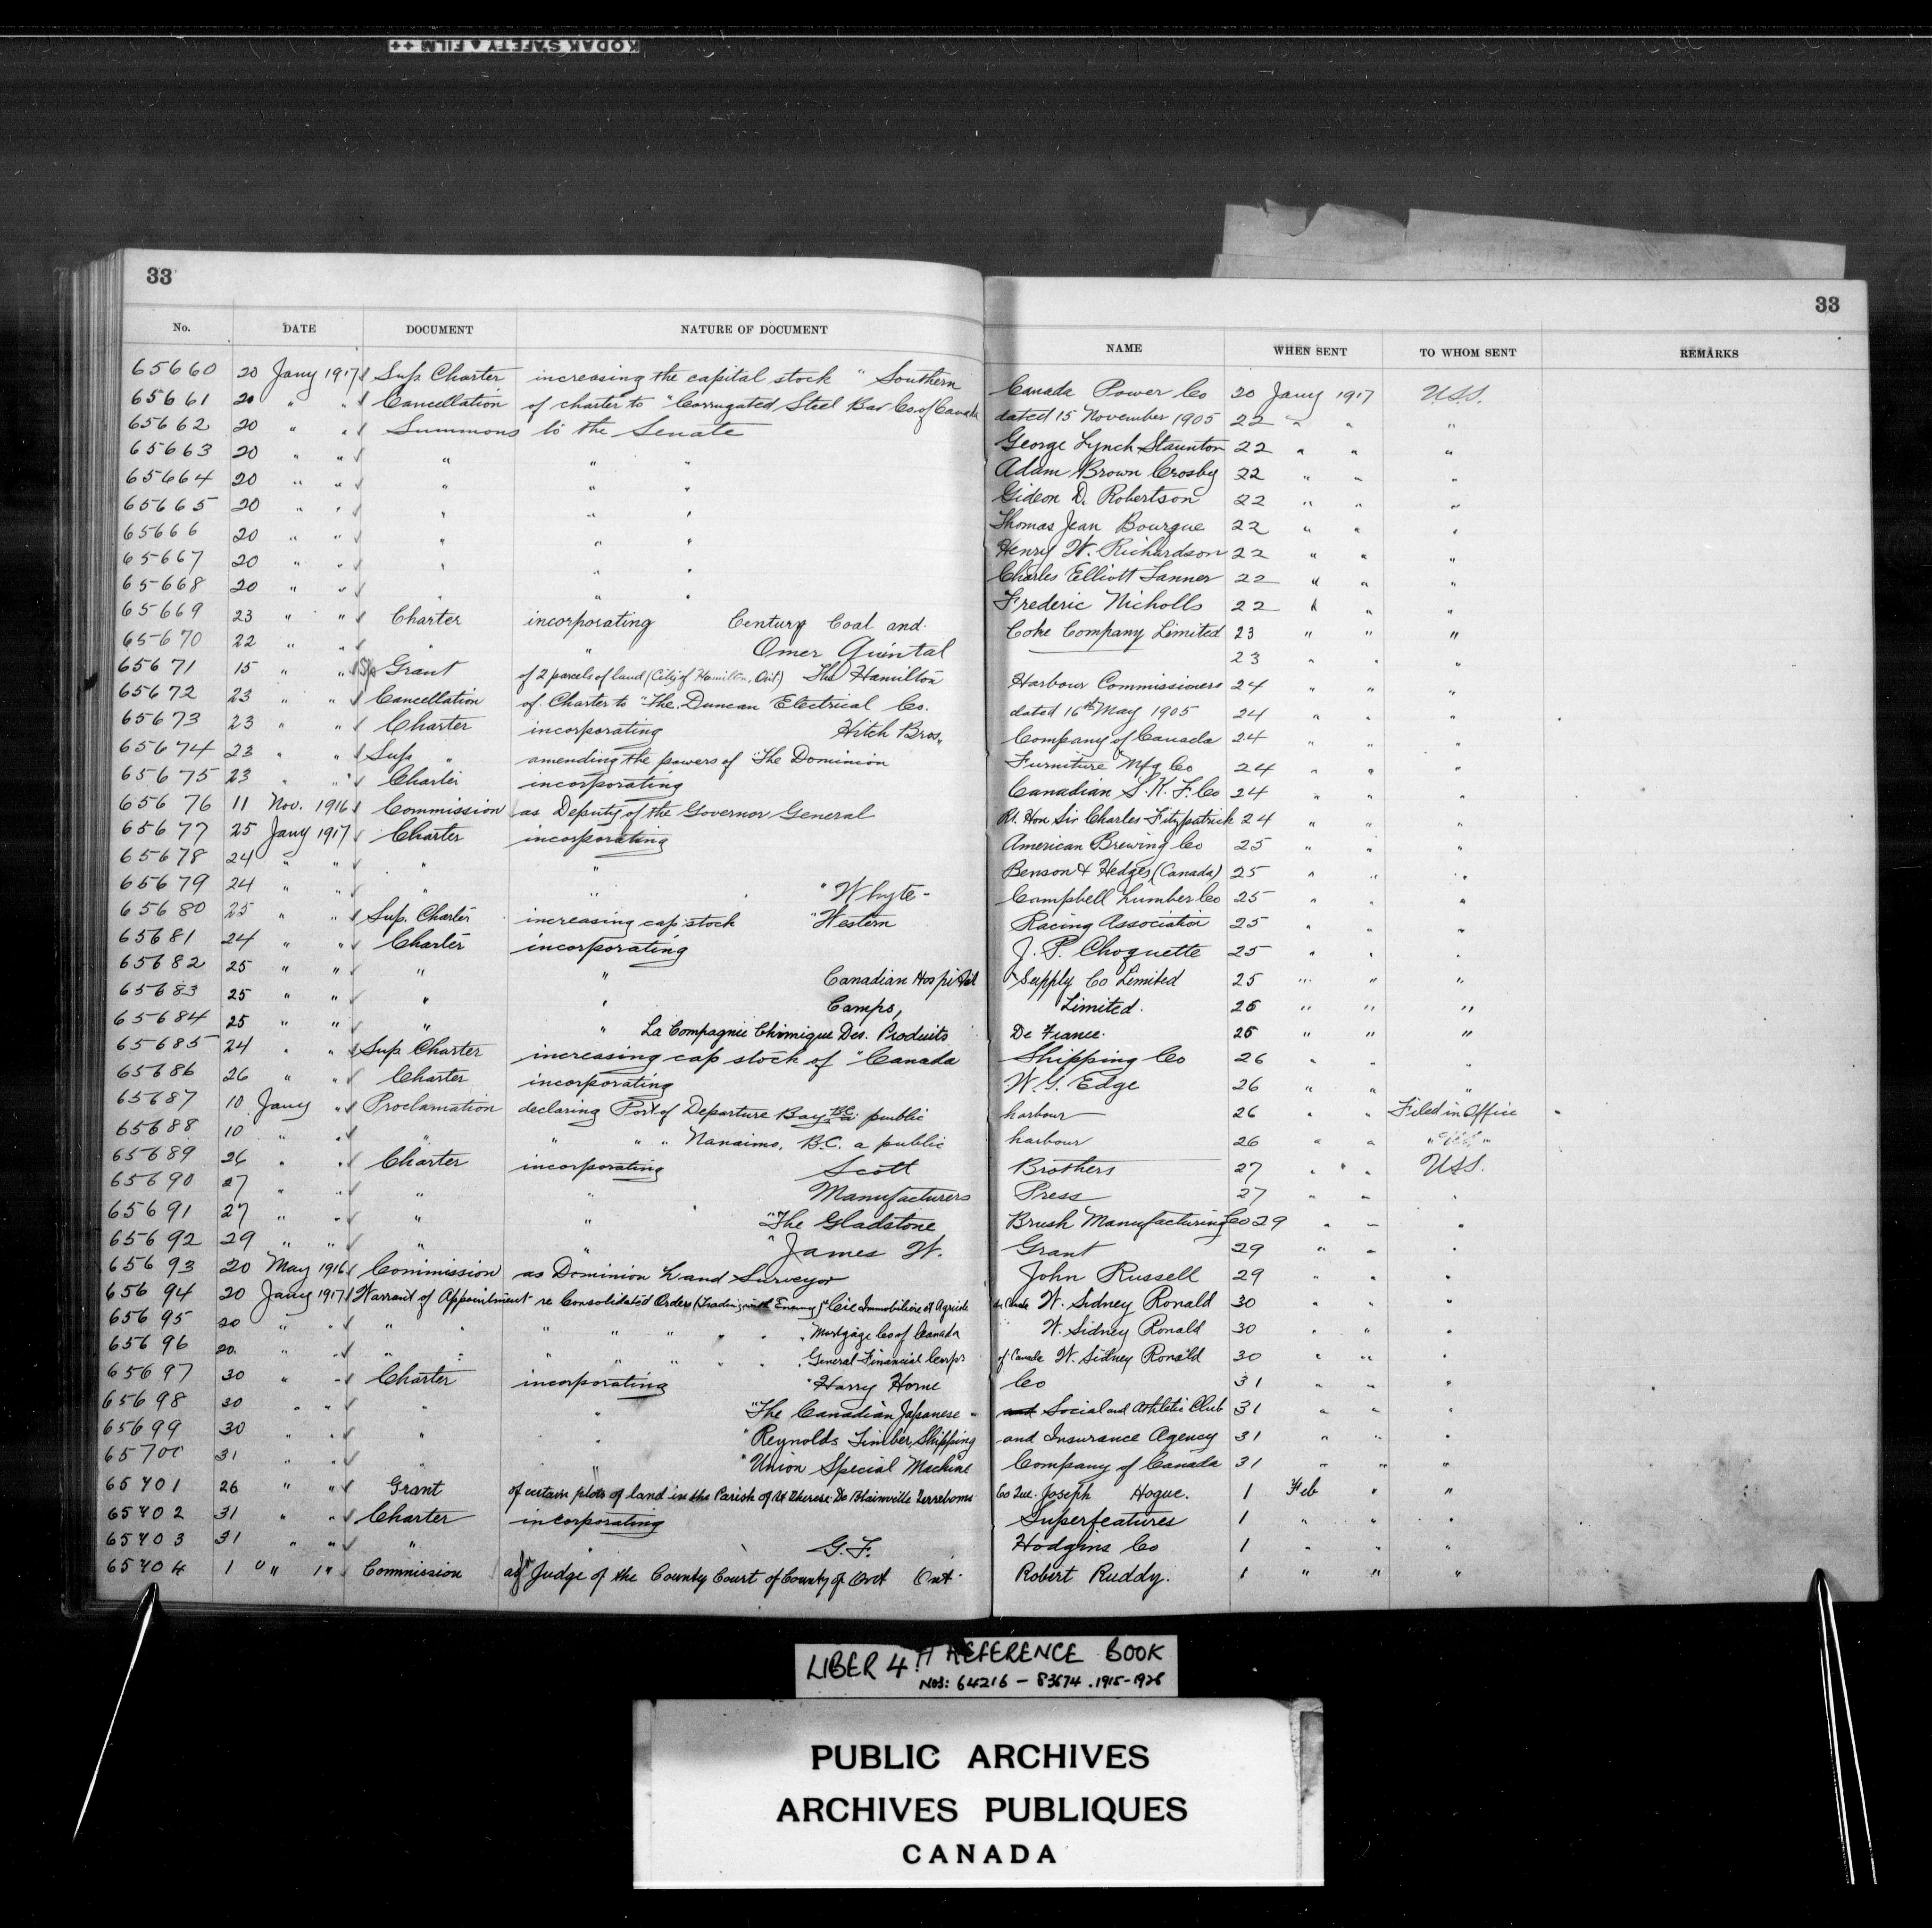 KODAK SAFETY FILM ++
33 33
No. DATE DOCUMENT NATURE OF DOCUMENT NAME WHEN SENT TO WHOM SENT REMARKS
65660 20 Jany 1917 Sup. Charter increasing the capital stock " Southern Canada Power Co 20 Jany 1917 U.S.S.
65661 20 " " Cancellation of charter to "Corrugated Steel Bar Co. of Canada dated 15 November 1905 22 " " "
65662 20 " " Summons to the Senate George Lynch Staunton 22 " " "
65663 20 " " " " " Adam Brown Crosby 22 " " "
65664 20 " " " " " Gideon D. Robertson 22 " " "
65665 20 " " " " " Thomas Jean Bourque 22 " " "
65666 20 " " " " " Henry W. Richardson 22 " " "
65667 20 " " " " " Charles Elliott Tanner 22 " " "
65668 20 " " " " " Frederic Nicholls 22 " " "
65669 23 " " Charter incorporating Century Coal and Coke Company Limited 23 " " "
65670 22 " " " " Omer Quintal 23 " " "
65671 15 " " Grant of 2 parcels of land (City of Hamilton, Ont) The Hamilton Harbour Commissioners 24 " " "
65672 23 " " Cancellation of Charter to "The Duncan Electrical Co. dated 16th May 1905 24 " " "
65673 23 " " Charter incorporating Hitch Bros., Company of Canada 24 " " "
65674 23 " " Sup. " amending the powers of "The Dominion Furniture Mfg Co 24 " " "
65675 23 " " Charter incorporating Canadian S.K.F. Co 24 " " "
65676 11 Nov. 1916 Commission as Deputy of the Governor General Rt. Hon Sir Charles Fitzpatrick 24 " " "
65677 25 Jany 1917 Charter incorporating American Brewing Co 25 " " "
65678 24 " " " " Benson & Hedges (Canada) 25 " " "
65679 24 " " " " "Whyte- Campbell Lumber Co 25 " " "
65680 25 " " Sup. Charter increasing cap. stock "Western Racing Association 25 " " "
65681 24 " " Charter incorporating J. P. Choquette 25 " " "
65682 25 " " " " Canadian Hospital Supply Co Limited 25 " " "
65683 25 " " " " Camps, Limited. 25 " " "
65684 25 " " " " La Compagnie Chimique Des. Produits De France. 25 " " "
65685 24 " " Sup Charter increasing cap stock of "Canada Shipping Co 26 " " "
65686 26 " " Charter incorporating W. G. Edge 26 " " "
65687 10 Jany " Proclamation declaring Port of Departure Bay B.C. a public harbour 26 " " Filed in Office
65688 10 " " " " " " Nanaimo, B.C. a public harbour 26 " " "
65689 26 " " Charter incorporating Scott Brothers 27 " " " USS.
65690 27 " " " " Manufacturers Press 27 " " "
65691 27 " " " " "The Gladstone Brush Manufacturing Co 29 " " "
65692 29 " " " " "James W. Grant 29 " " "
65693 20 May 1916 Commission as Dominion Land Surveyor John Russell 29 " " "
65694 20 Jany 1917 Warrant of Appointment re Consolidated Orders (Trading with Enemy) "Cie Immobiliere et Agricole du Canada W. Sidney Ronald 30 " " "
65695 20 " " " " " " " " " " Mortgage Co of Canada W. Sidney Ronald 30 " " "
65696 20. " " " " " " " " " " General Financial Corp'n of Canada W. Sidney Ronald 30 " " "
65697 30 " " Charter incorporating "Harry Horne Co 31 " " "
65698 30 " " " " "The Canadian Japanese " and Social and Athletic Club 31 " " "
65699 30 " " " " "Reynolds Timber, Shipping and Insurance Agency 31 " " "
65700 31 " " " " "Union Special Machine Company of Canada 31 " " "
65701 26 " " Grant of certain plots of land in the Parish of St Therese De Blainville Terrebonne Co Que. Joseph Hogue. 1 Feb " "
65702 31 " " Charter incorporating Superfeatures 1 " " "
65703 31 " " " " G. F. Hodgins Co 1 " " "
65704 1 " " Commission as Jr Judge of the County Court of County of Ont Ont. Robert Ruddy. 1 " " "
LIBER 4 REFERENCE BOOK
NOS: 64216 - 83674 . 1915-1926
PUBLIC ARCHIVES
ARCHIVES PUBLIQUES
CANADA